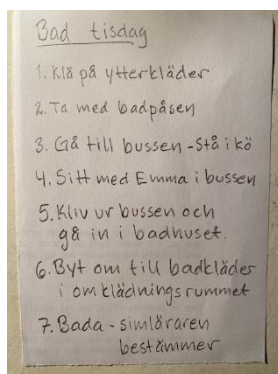 Bad tisdag
1. Klä på ytterkläder
2. Ta med badpåsen
3. Gå till bussen - Stå i kö
4. Sitt med Emma i bussen
5. Kliv ur bussen och
gå in i badhuset.
6. Byt om till badkläder
i omklädningsrummet
7. Bada - simläraren
bestämmer